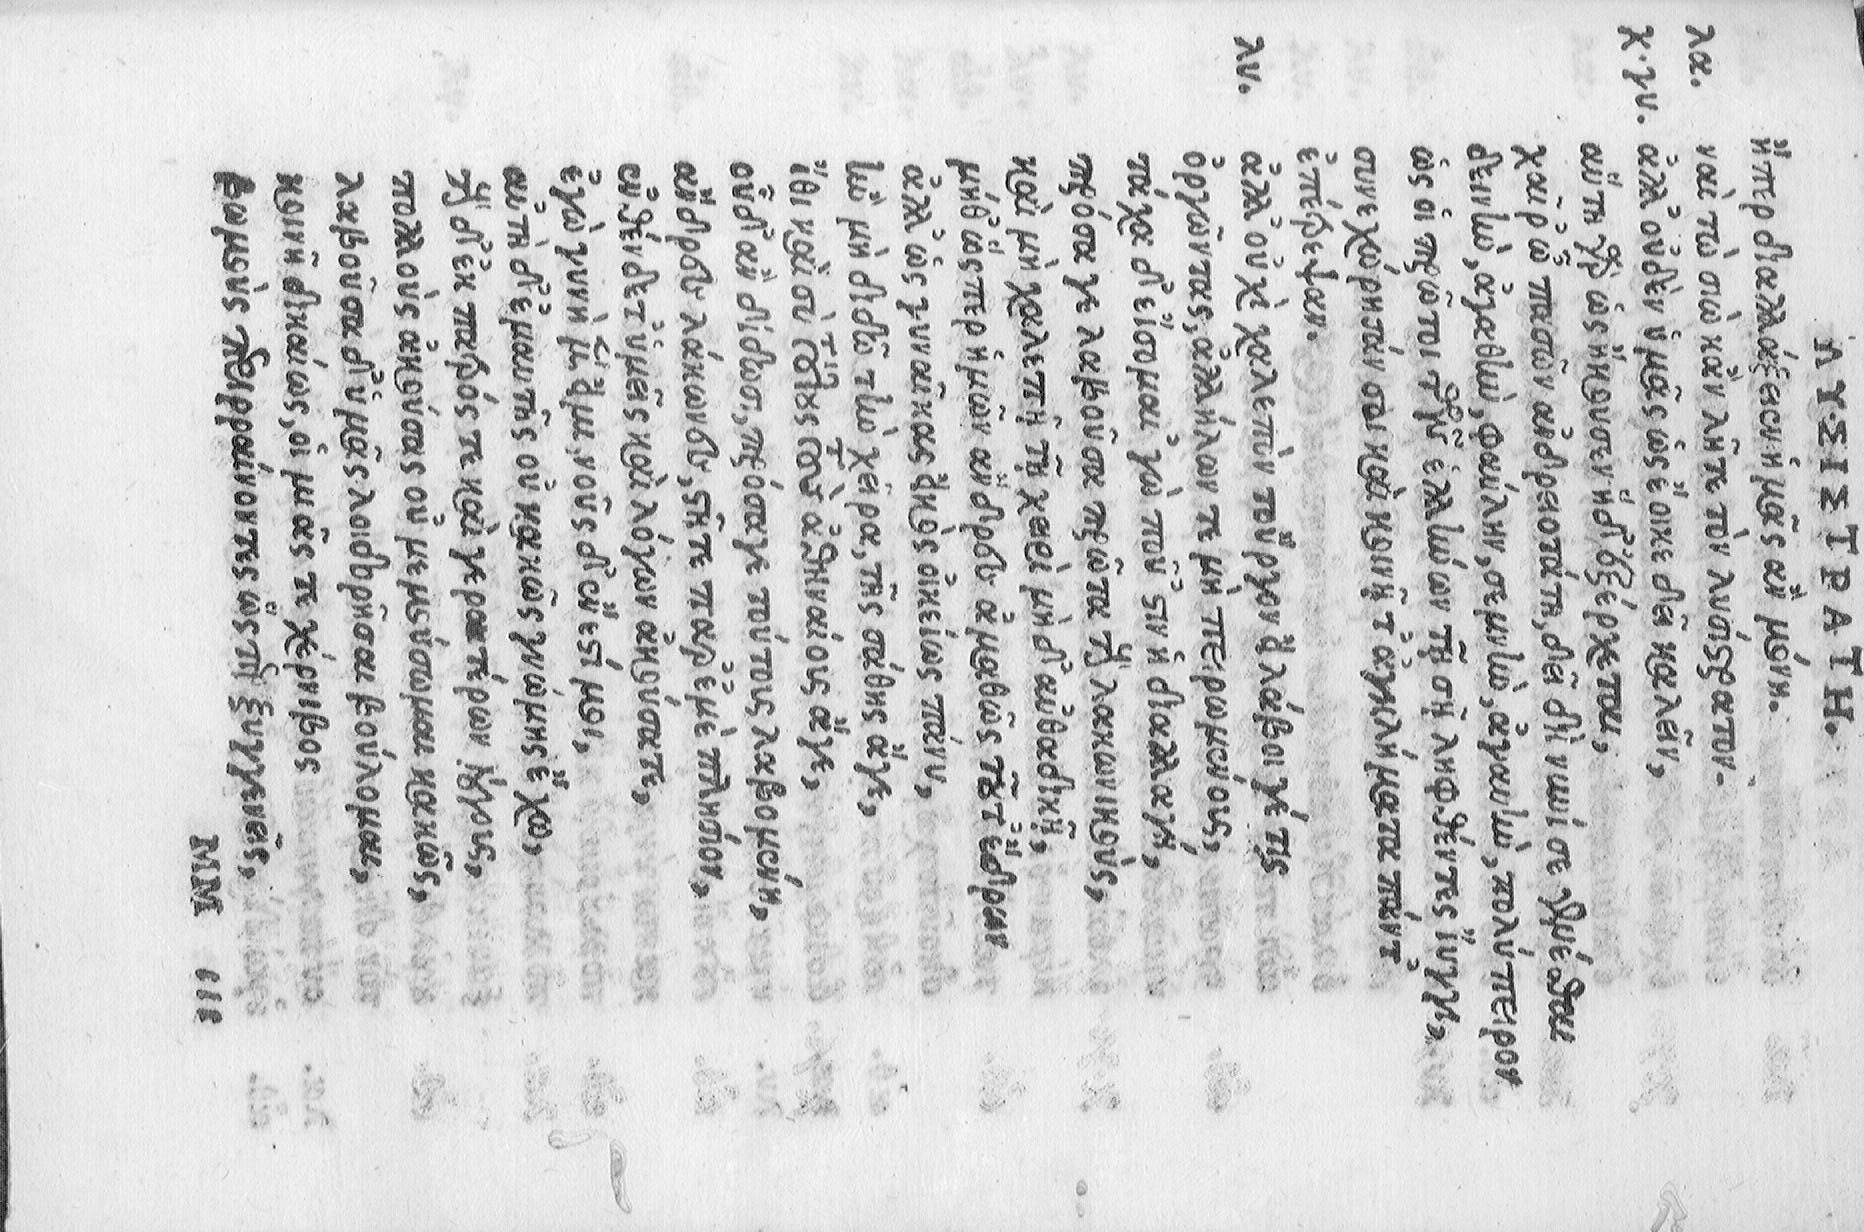 ΛΥΣΙΣΤΡΑΤΗ.
ἥπερ διαλλάξειεν ἡμᾶς ἂν μόνη.
λα. ναὶ τὼ σιὼ κἂν λῆτε τὸν λυσίστρατον.
χ.γυ. ἀλλ' οὐδὲν ὑμᾶς ὡς ἔοικε δεῖ καλεῖν,
αὕτη γὰρ ὡς ἤκουσεν ἥδ' ἐξέρχεται,
χαῖρ' ὦ πασῶν ἀνδρειοτάτη, δεῖ δὴ νυνί σε γενέσθαι
δεινὴν, ἀγαθὴν, φαύλην, σεμνὴν, ἀγανὴν, πολύπειρον
ὡς οἱ πρῶτοι τῶν ἑλλήνων τῇ σῇ ληφθέντες ἴυγγι,
συνεχώρησάν σοι καὶ κοινῇ τ' ἀγκλήματα πάντ'
ἐπέτρεψαν.
λυ. ἀλλ' οὐχὶ χαλεπὸν τοὖργον εἰ λάβοι γέ τις
ὀργῶντας, ἀλλήλων τε μὴ πειρωμένους,
τάχα δ' εἴσομαι 'γὼ ποῦ 'στιν ἡ διαλλαγή,
πρόσαγε λαβοῦσα πρῶτα τοὺς λακωνικοὺς,
καὶ μὴ χαλεπῇ τῇ χειρὶ μηδ' αὐθαδικῇ,
μηθ' ὥσπερ ἡμῶν ἄνδρες ἀμαθῶς τοῦτ' ἔδρων
ἀλλ' ὡς γυναῖκας εἰκὸς οἰκείως πάνυ,
ἢν μὴ διδῷ τὴν χεῖρα, τῆς σάθης ἄγε,
ἴθι καὶ σὺ τούτους τοὺς ἀθηναίους ἄγε,
οὗ δ' ἂν διδῶσι, πρόσαγε τούτους λαβομένη,
ἄνδρες λάκωνες, στῆτε παρ' ἐμὲ πλησίον,
ἐνθένδε τ' ὑμεῖς καὶ λόγων ἀκούσατε,
ἐγὼ γυνὴ μέν εἰμι. νοῦς δ' ἔνεστί μοι,
αὐτὴ δ' ἐμαυτῆς οὐ κακῶς γνώμης ἔχω,
τοὺς δ' ἐκ πατρός τε καὶ γεραιτέρων λόγους,
πολλοὺς ἀκούσασ' οὐ μεμούσωμαι κακῶς,
λαβοῦσα δ' ὑμᾶς λοιδορῆσαι βούλομαι,
κοινῇ δικαίως, οἳ μιᾶς τε χέρνιβος
βωμοὺς περιρραίνοντες ὥσπερ ξυγγενεῖς,
MM iii